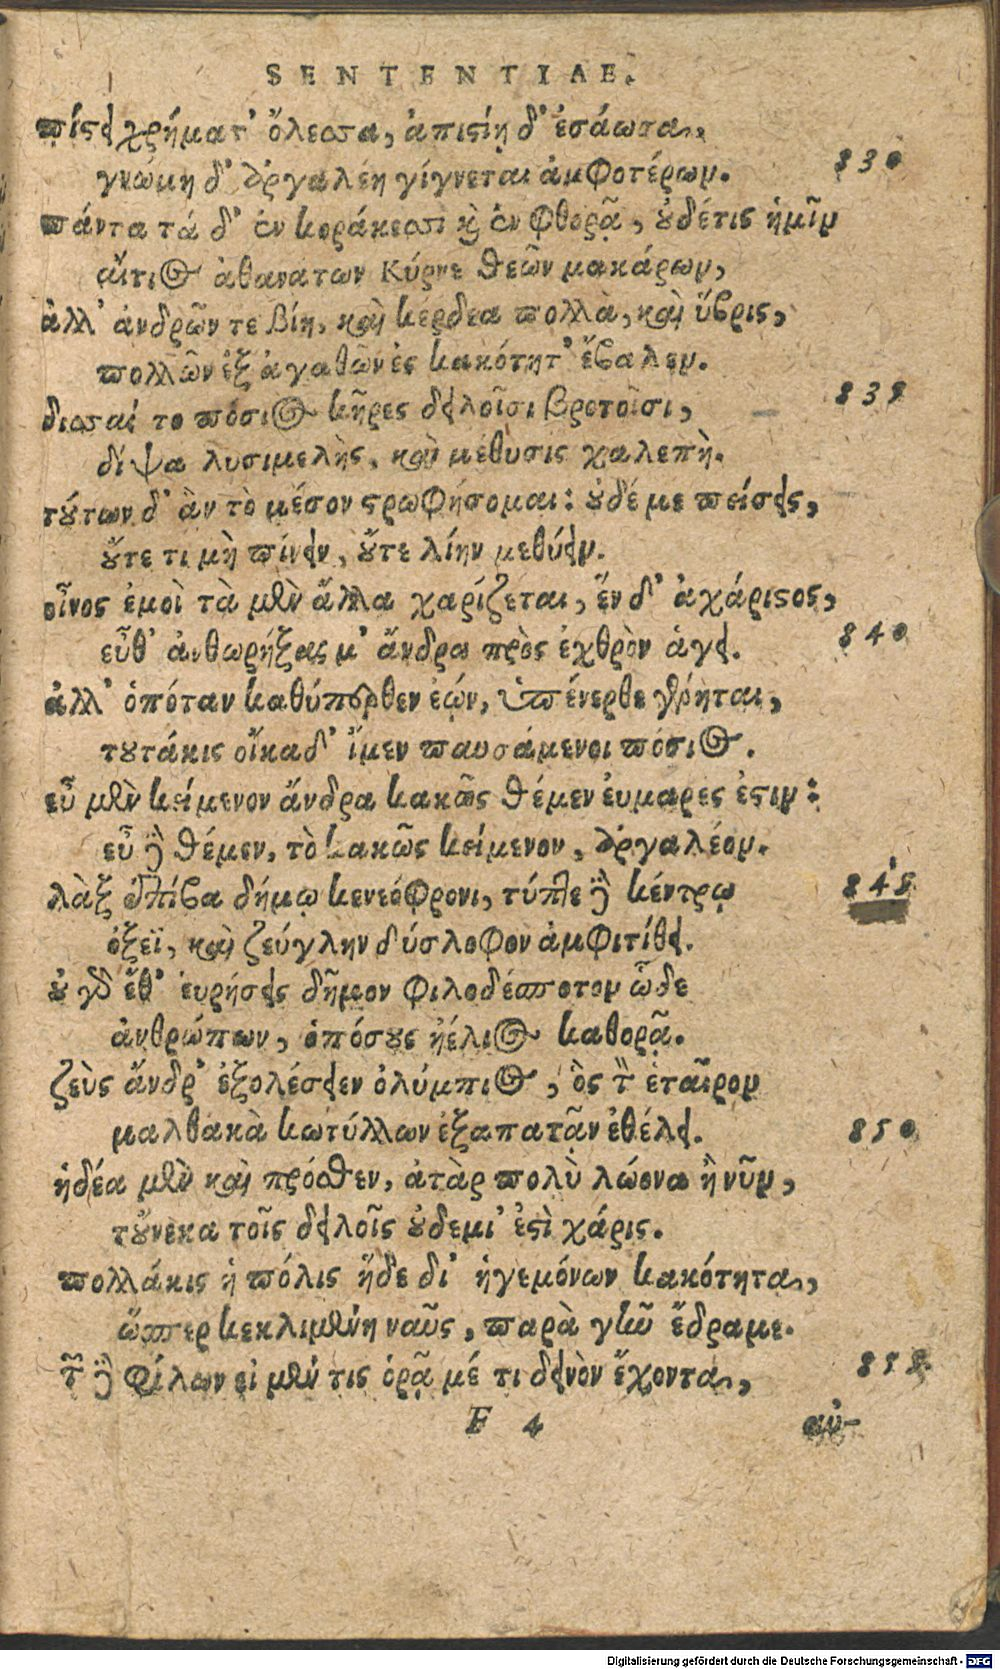 SENTENTIAE.
πίςει χρήματ' ὄλεσσα, ἀπιςίῃ δ' ἐσάωσα,
γνώμη δ' ἀργαλέη γίγνεται ἀμφοτέρων. 830
πάντα τά δ' ἐν κοράκεσσι καὶ ἐν φθορᾷ, οὐδέτις ἡμῖν
αἴτιος ἀθανατων Κύρνε θεῶν μακάρων,
ἀλλ' ἀνδρῶν τε βίη, καὶ κέρδεα πολλὰ, καὶ ὕβρις,
πολλῶν ἐξ ἀγαθῶν ἐς κακότητ' ἔβαλεν.
δισσαί το πόσιος κῆρες δειλοῖσι βροτοῖσι, 835
δίψα λυσιμελὴς, καὶ μέθυσις χαλεπὴ.
τούτων δ' ἂν τὸ μέσον ςρωφήσομαι: οὐδέ με πείσεις,
οὔτε τι μὴ πίνειν, οὔτε λίην μεθύειν.
οἶνος ἐμοὶ τὰ μὲν ἄλλα χαρίζεται, ἕν δ' ἀχάριςος,
εὖθ' ἀνθωρήξας μ' ἄνδρα πρὸς ἐχθρὸν ἀγει. 840
ἀλλ' ὁπόταν καθύπερθεν ἐών, ὑπένερθε γένηται,
τουτάκις οἴκαδ' ἴμεν παυσάμενοι πόσιος.
εὖ μὲν κείμενον ἄνδρα κακῶς θέμεν ἐυμαρες ἐςιν:
εὖ δὲ θέμεν, τὸ κακῶς κείμενον, ἀργαλέον.
λὰξ ἐπίβα δήμῳ κενεόφρονι, τύπτε δὲ κέντρῳ 845
ὀξεϊ, καὶ ζεύγλην δύσλοφον ἀμφιτίθει.
οὐ γὰρ ἔθ' ἑυρήσεις δῆμον φιλοδέσποτον ὧδε
ἀνθρώπων, ὁπόσους ἠέλιος καθορᾷ.
ζεὺς ἄνδρ' ἐξολέσειεν ὀλύμπιος, ὃς τὸν ἑταῖρον
μαλθακὰ κωτύλλων ἐξαπατᾷν ἐθέλει. 850
ἠδέα μὲν καὶ πρόσθεν, ἀτὰρ πολὺ λώονα ἢ νῦν,
τοὔνεκα τοῖς δειλοῖς οὐδεμι' ἐςὶ χάρις.
πολλάκις ἡ πόλις ἥδε δι' ἡγεμόνων κακότητα,
ὥσπερ κεκλιμένη ναῦς, παρὰ γῆν ἔδραμε.
τῶν δὲ φίλων εἰ μέν τις ὁρᾷ μέ τι δεινὸν ἔχοντα, 855
F 4 αὐ-
Digitalisierung gefördert durch die Deutsche Forschungsgemeinschaft - DFG